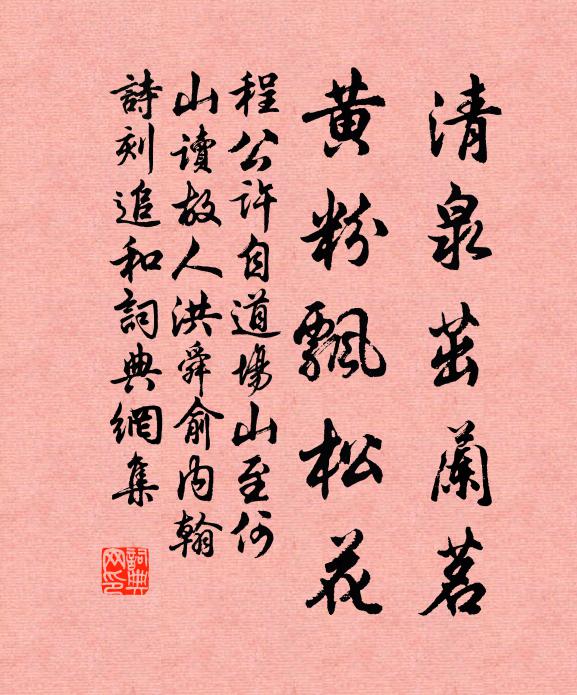 清泉茁蘭茗
黃粉飄松花
程公許自道場山至何
山讀故人洪舜俞內翰
詩刻追和詞典網集
詞典网印